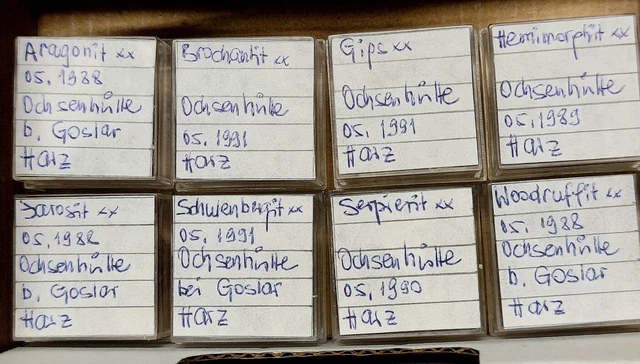 Aragonit xx
05.1988
Ochsenhütte
b. Goslar
Harz
Brochantit xx
Ochsenhütte
05.1991
Harz
Gips xx
Ochsenhütte
05.1991
Harz
Hemimorphit xx
Ochsenhütte
05.1989
Harz
Jarosit xx
05.1988
Ochsenhütte
b. Goslar
Harz
Schulenbergit xx
05.1991
Ochsenhütte
bei Goslar
Harz
Serpierit xx
Ochsenhütte
05.1990
Harz
Woodruffit xx
05.1988
Ochsenhütte
b. Goslar
Harz